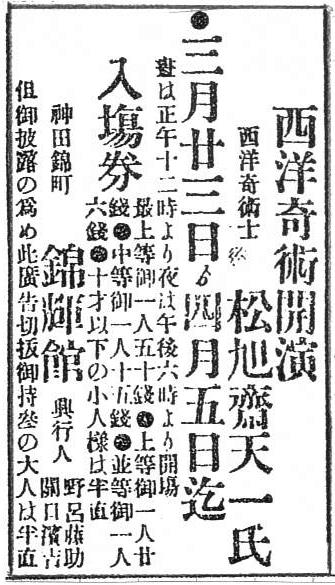 西洋奇術開演
西洋奇術士 松旭齋天一氏
●三月廿三日ゟ四月五日迄
晝は正午十二時より夜は午後六時より開塲
入塲券
最上等御一人五十錢●上等御一人廿
錢●中等御一人十五錢●並等御一人
六錢●十才以下の小人樣は半直
神田錦町 錦輝館 興行人
野呂藤助
關口濱吉
但御披露の爲め此廣告切抜御持叄の大人は半直